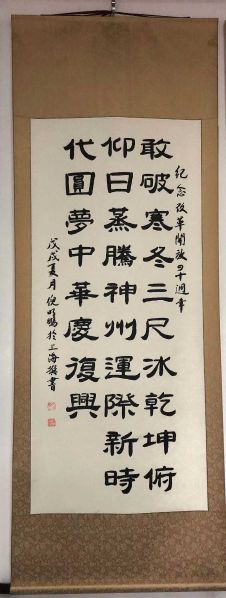 紀念改革開放四十週年
敢破寒冬三尺冰乾坤俯
仰日蒸騰神州運際新時
代圓夢中華慶復興
戊戌夏月倪於上海撰書